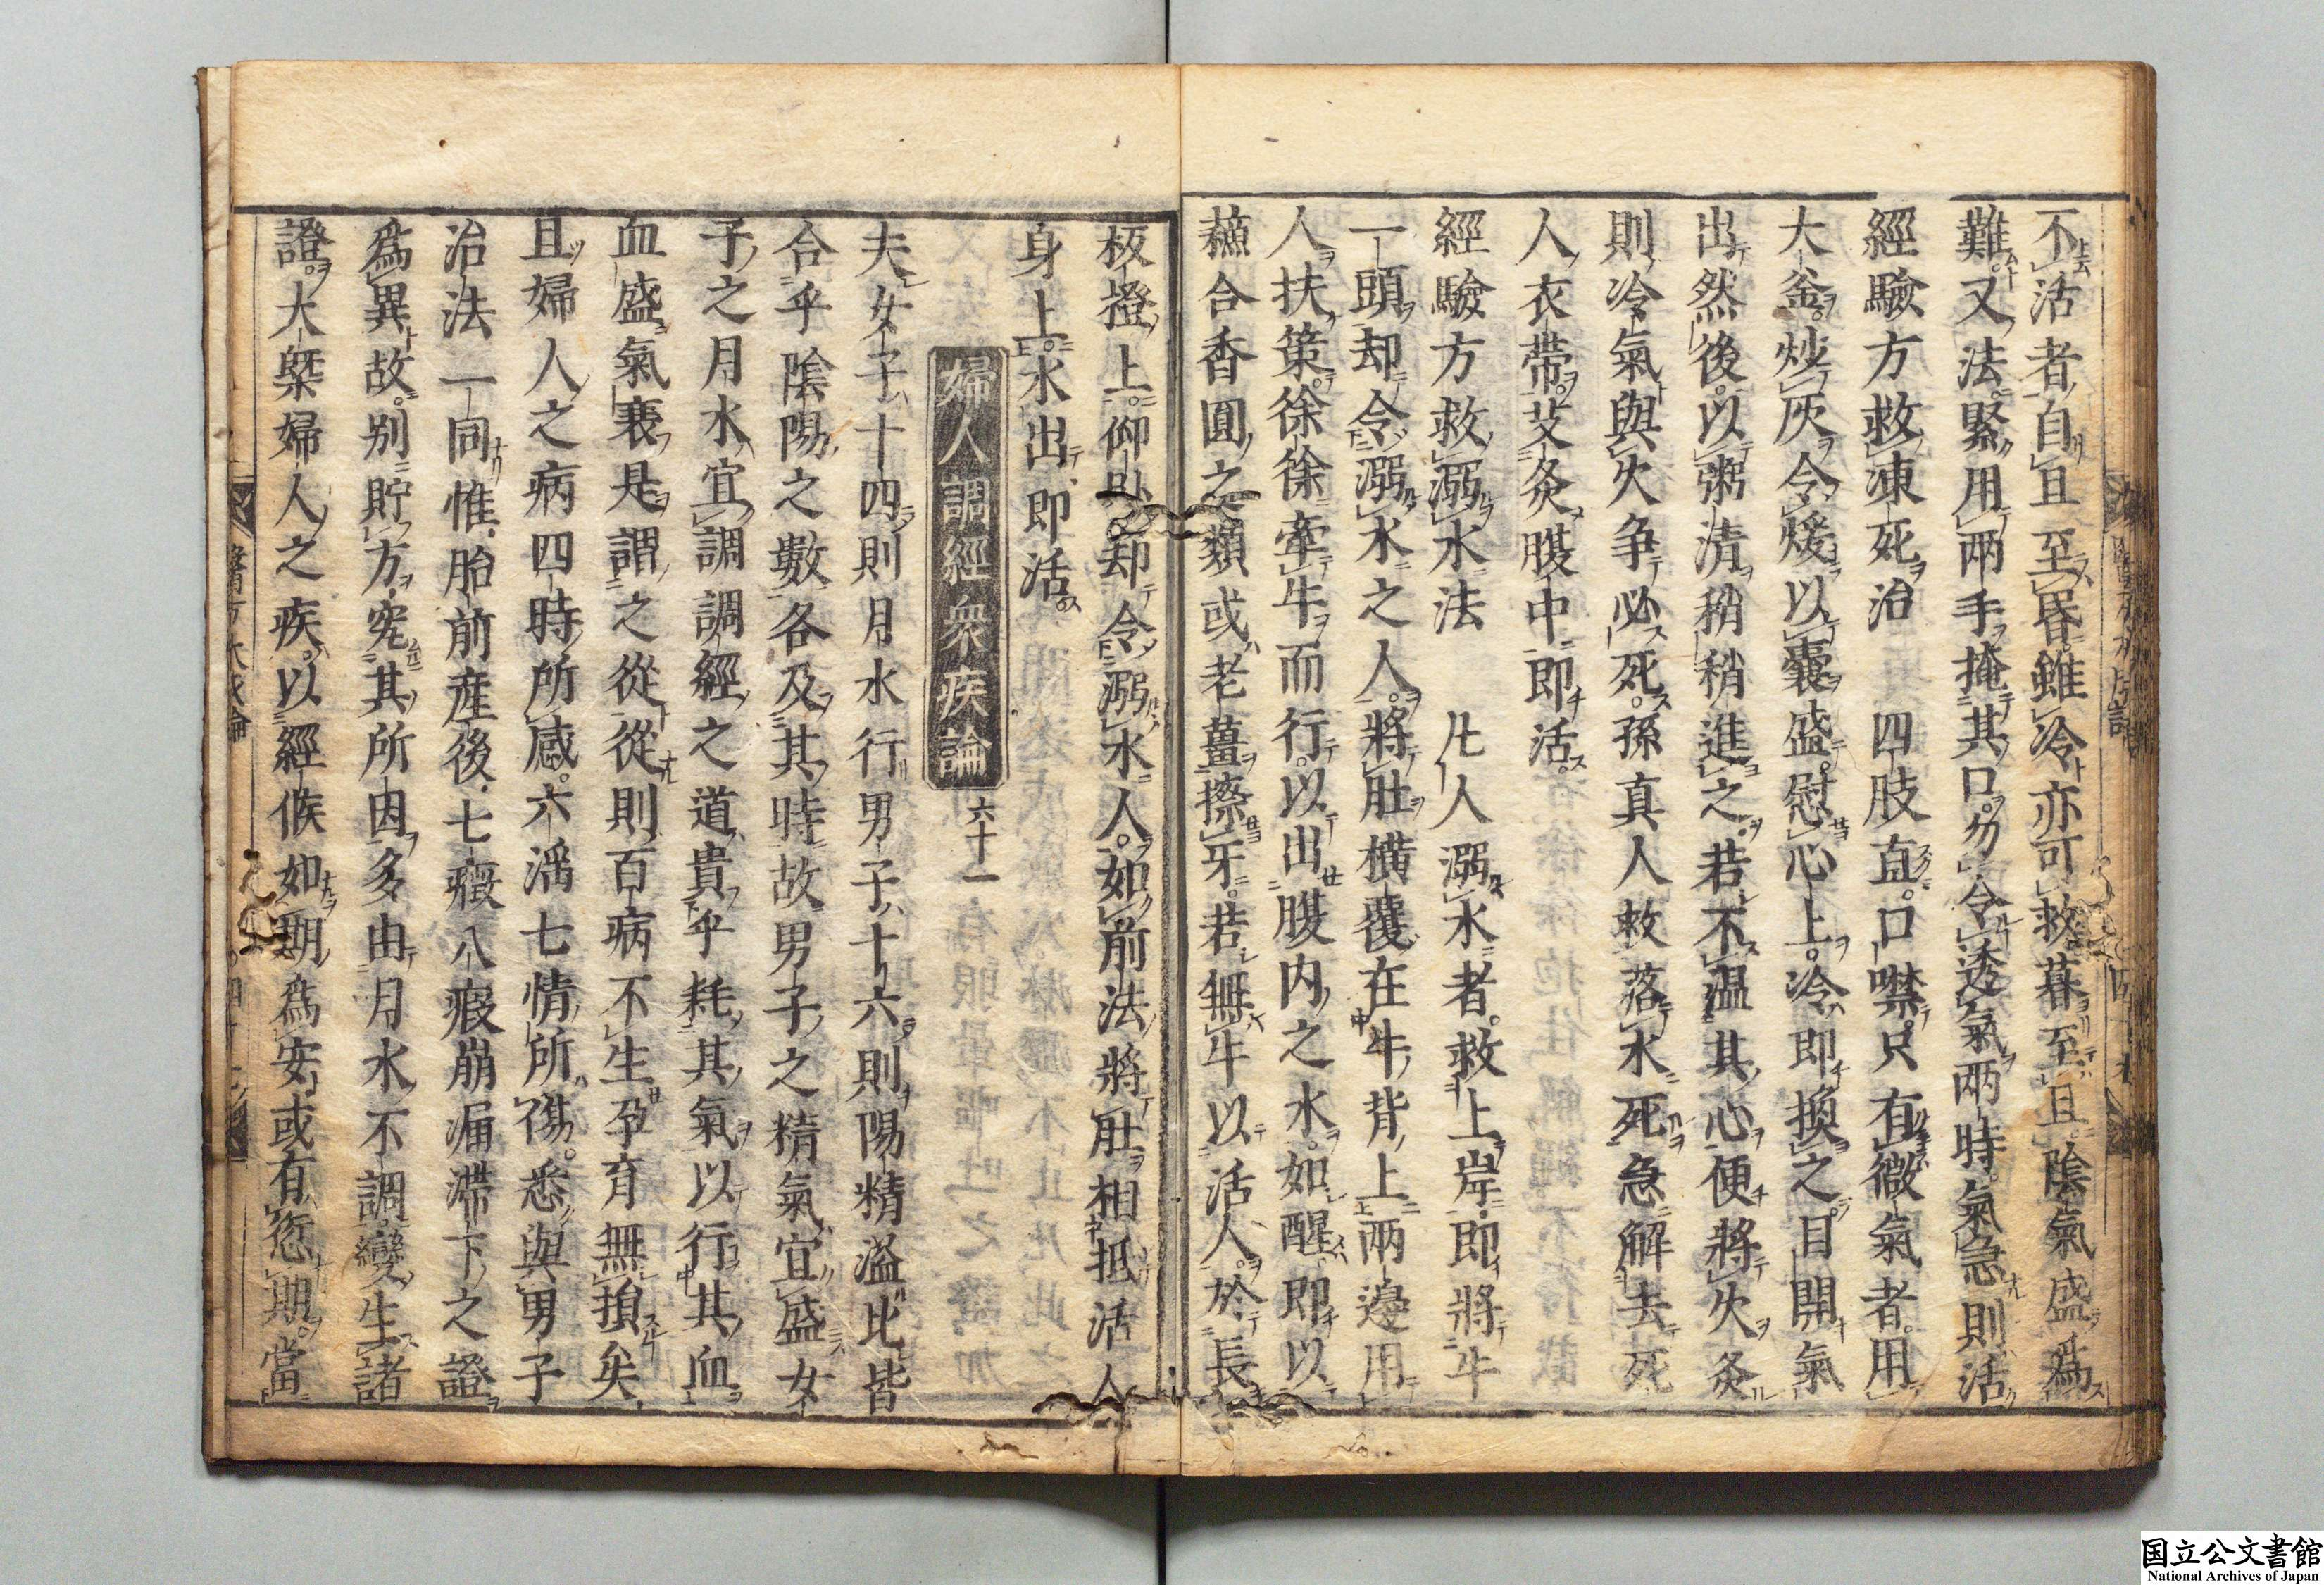 不活者自且至昏雖冷亦可救暮至且陰氣盛爲
難又法緊用兩手掩其口勿令透氣兩時氣急則活
經驗方救凍死治　四肢直口噤只有微氣者用
大釜炒灰令煖以囊盛慰心上冷即換之目開氣
出然後以粥清稍稍進之若不温其心便將火灸
則冷氣與火争必死孫真人救落水死急解去死
人衣帶艾灸臍中即活
經驗方救溺水法　凡人溺水者救上岸即將牛
一頭却令溺水之人將肚横覆在牛背上兩邊用
人扶策徐徐牽牛而行以出腹内之水如醒即以
蘓合香圓之類或老薑擦牙若無牛以活人於長
板櫈上仰卧却令溺水人如前法將肚相抵活人
身上水出即活
婦人調經衆疾論 六十一
夫女子十四則月水行男子十六則陽精溢此皆
合乎陰陽之數各及其時故男子之精氣宜盛女
子之月水宜調調經之道貴乎耗其氣以行其血
血盛氣衰是謂之從從則百病不生孕育無損矣
且婦人之病四時所感六滛七情所傷悉與男子
治法一同惟胎前産後七癥八瘕崩漏滯下之證
爲異故别貯方究其所因多由月水不調變生諸
證大槩婦人之疾以經候如期爲安或有愆期當
国立公文書館
National Archives of Japan